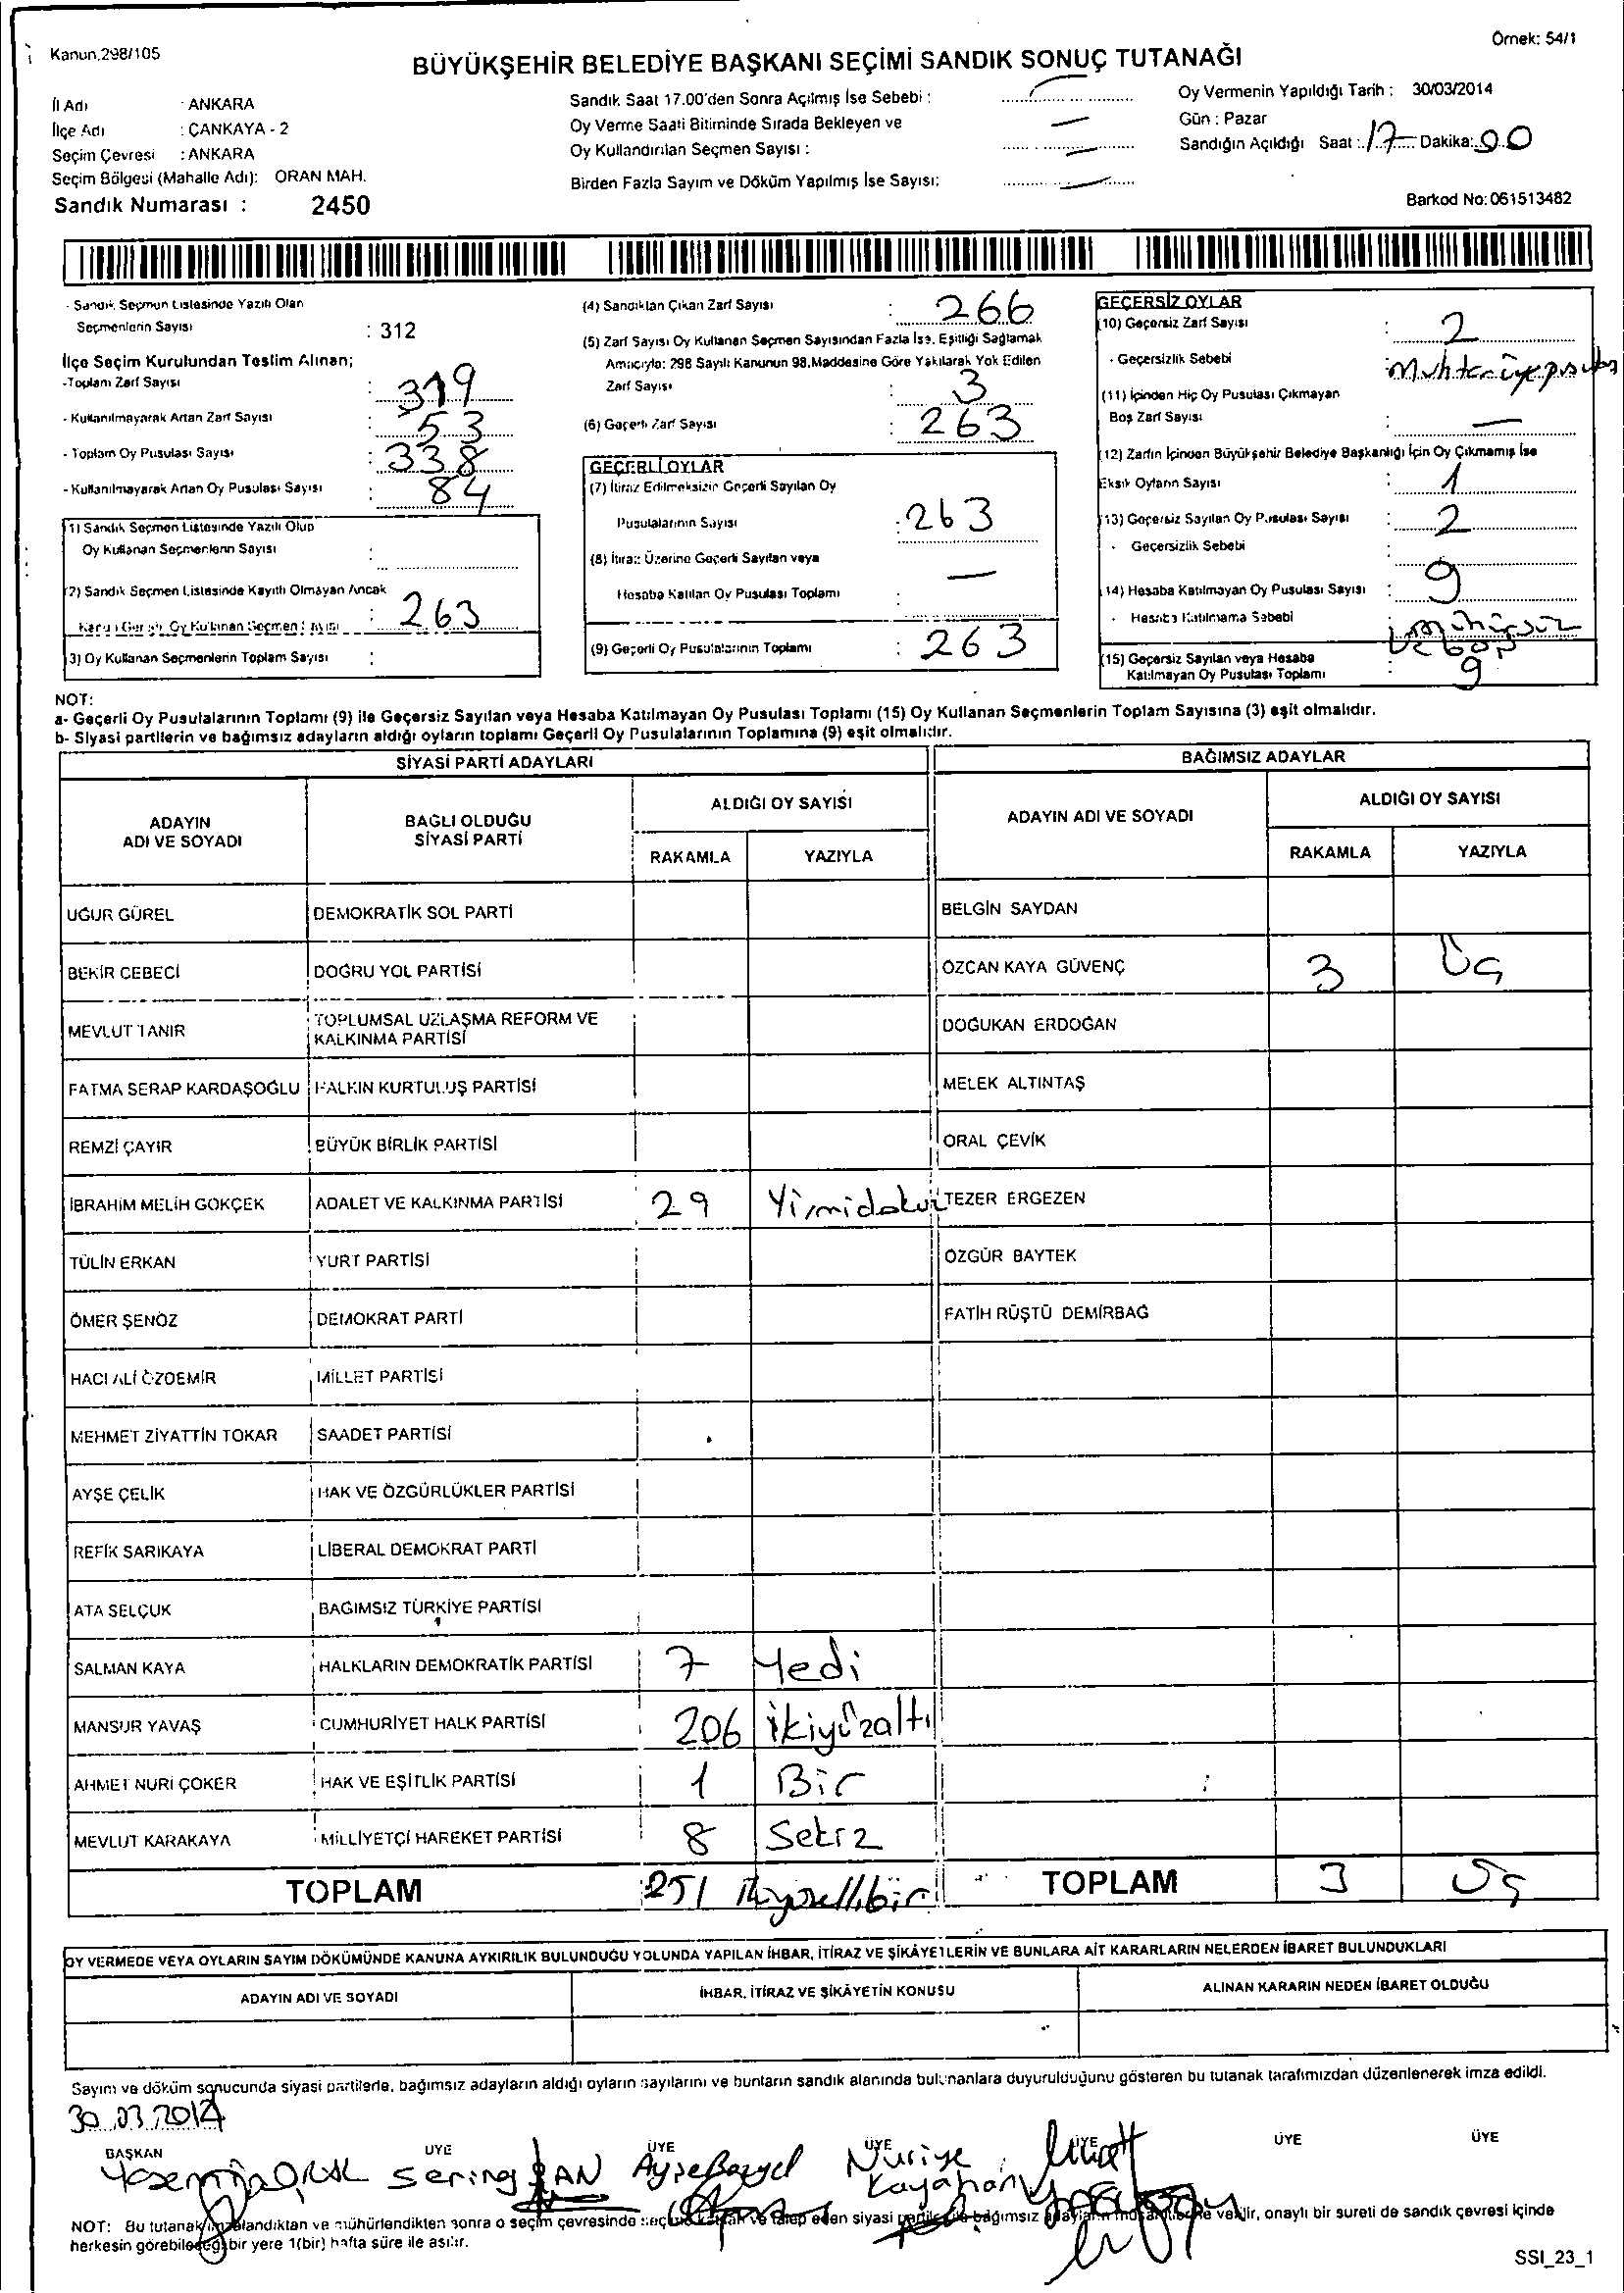 Kanun.298/105
Örnek: 54/1
BÜYÜKŞEHİR BELEDİYE BAŞKANI SEÇİMİ SANDIK SONUÇ TUTANAĞI
İl Adı : ANKARA
İlçe Adı : ÇANKAYA - 2
Seçim Çevresi : ANKARA
Seçim Bölgesi (Mahalle Adı): ORAN MAH.
Sandık Numarası : 2450
Sandık Saat 17.00'den Sonra Açılmış İse Sebebi :
Oy Verme Saati Bitiminde Sırada Bekleyen ve
Oy Kullandırılan Seçmen Sayısı :
Birden Fazla Sayım ve Döküm Yapılmış İse Sayısı:
Oy Vermenin Yapıldığı Tarih : 30/03/2014
Gün : Pazar
Sandığın Açıldığı Saat : 17 Dakika: 00
Barkod No: 061513482
- Sandık Seçmen Listesinde Yazılı Olan
Seçmenlerin Sayısı : 312
İlçe Seçim Kurulundan Teslim Alınan;
-Toplam Zarf Sayısı : 319
- Kullanılmayarak Artan Zarf Sayısı : 53
- Toplam Oy Pusulası Sayısı : 338
- Kullanılmayarak Artan Oy Pusulası Sayısı : 84
(1) Sandık Seçmen Listesinde Yazılı Olup
Oy Kullanan Seçmenlerin Sayısı :
(2) Sandık Seçmen Listesinde Kayıtlı Olmayan Ancak
Oy Kullanan Seçmen Sayısı : 263
(3) Oy Kullanan Seçmenlerin Toplam Sayısı :
(4) Sandıktan Çıkan Zarf Sayısı : 266
(5) Zarf Sayısı Oy Kullanan Seçmen Sayısından Fazla İse, Eşitliği Sağlamak
Amacıyla: 298 Sayılı Kanunun 98.Maddesine Göre Yakılarak Yok Edilen
Zarf Sayısı : 3
(6) Geçerli Zarf Sayısı : 263
GEÇERLİ OYLAR
(7) İtiraz Edilmeksizin Geçerli Sayılan Oy
Pusulalarının Sayısı : 263
(8) İtiraz Üzerine Geçerli Sayılan veya
Hesaba Katılan Oy Pusulası Toplamı : —
(9) Geçerli Oy Pusulalarının Toplamı : 263
GEÇERSİZ OYLAR
(10) Geçersiz Zarf Sayısı : 2
- Geçersizlik Sebebi :
(11) İçinden Hiç Oy Pusulası Çıkmayan
Boş Zarf Sayısı : —
(12) Zarfın İçinden Büyükşehir Belediye Başkanlığı İçin Oy Çıkmamış İse
Eksik Oyların Sayısı : 1
(13) Geçersiz Sayılan Oy Pusulası Sayısı : 2
- Geçersizlik Sebebi :
(14) Hesaba Katılmayan Oy Pusulası Sayısı : 9
- Hesaba Katılmama Sebebi : mühürsüz
ve boş
(15) Geçersiz Sayılan veya Hesaba
Katılmayan Oy Pusulası Toplamı : 9
NOT:
a- Geçerli Oy Pusulalarının Toplamı (9) ile Geçersiz Sayılan veya Hesaba Katılmayan Oy Pusulası Toplamı (15) Oy Kullanan Seçmenlerin Toplam Sayısına (3) eşit olmalıdır.
b- Siyasi partilerin ve bağımsız adayların aldığı oyların toplamı Geçerli Oy Pusulalarının Toplamına (9) eşit olmalıdır.
SİYASİ PARTİ ADAYLARI
BAĞIMSIZ ADAYLAR
ADAYIN ADI VE SOYADI
BAĞLI OLDUĞU SİYASİ PARTİ
ALDIĞI OY SAYISI
RAKAMLA YAZIYLA
ADAYIN ADI VE SOYADI
ALDIĞI OY SAYISI
RAKAMLA YAZIYLA
UĞUR GÜREL DEMOKRATİK SOL PARTİ BELGİN SAYDAN
BEKİR CEBECİ DOĞRU YOL PARTİSİ ÖZCAN KAYA GÜVENÇ 3 Üç
MEVLUT TANIR TOPLUMSAL UZLAŞMA REFORM VE KALKINMA PARTİSİ DOĞUKAN ERDOĞAN
FATMA SERAP KARDAŞOĞLU HALKIN KURTULUŞ PARTİSİ MELEK ALTINTAŞ
REMZİ ÇAYIR BÜYÜK BİRLİK PARTİSİ ORAL ÇEVİK
İBRAHİM MELİH GÖKÇEK ADALET VE KALKINMA PARTİSİ 29 Yirmidokuz TEZER ERGEZEN
TÜLİN ERKAN YURT PARTİSİ ÖZGÜR BAYTEK
ÖMER ŞENÖZ DEMOKRAT PARTİ FATİH RÜŞTÜ DEMİRBAĞ
HACI ALİ ÖZDEMİR MİLLET PARTİSİ
MEHMET ZİYATTİN TOKAR SAADET PARTİSİ
AYŞE ÇELİK HAK VE ÖZGÜRLÜKLER PARTİSİ
REFİK SARIKAYA LİBERAL DEMOKRAT PARTİ
ATA SELÇUK BAĞIMSIZ TÜRKİYE PARTİSİ
SALMAN KAYA HALKLARIN DEMOKRATİK PARTİSİ 7 Yedi
MANSUR YAVAŞ CUMHURİYET HALK PARTİSİ 206 ikiyüzaltı
AHMET NURİ ÇOKER HAK VE EŞİTLİK PARTİSİ 1 Bir
MEVLUT KARAKAYA MİLLİYETÇİ HAREKET PARTİSİ 8 Sekiz
TOPLAM 251 İkiyüzellibir TOPLAM 3 Üç
OY VERMEDE VEYA OYLARIN SAYIM DÖKÜMÜNDE KANUNA AYKIRILIK BULUNDUĞU YOLUNDA YAPILAN İHBAR, İTİRAZ VE ŞİKÂYETLERİN VE BUNLARA AİT KARARLARIN NELERDEN İBARET BULUNDUKLARI
ADAYIN ADI VE SOYADI İHBAR, İTİRAZ VE ŞİKÂYETİN KONUSU ALINAN KARARIN NEDEN İBARET OLDUĞU
Sayım ve döküm sonucunda siyasi partilerle, bağımsız adayların aldığı oyların sayılarını ve bunların sandık alanında bulunanlara duyurulduğunu gösteren bu tutanak tarafımızdan düzenlenerek imza edildi.
30.03.2014
BAŞKAN ÜYE ÜYE ÜYE ÜYE ÜYE ÜYE
Nuriye
Kayahan
NOT: Bu tutanak imzalandıktan ve mühürlendikten sonra o seçim çevresinde seçime katılan ve talep eden siyasi partiler ile bağımsız adayların müşahitlerine verilir, onaylı bir sureti de sandık çevresi içinde
herkesin görebileceği bir yere 1(bir) hafta süre ile asılır.
SSI_23_1